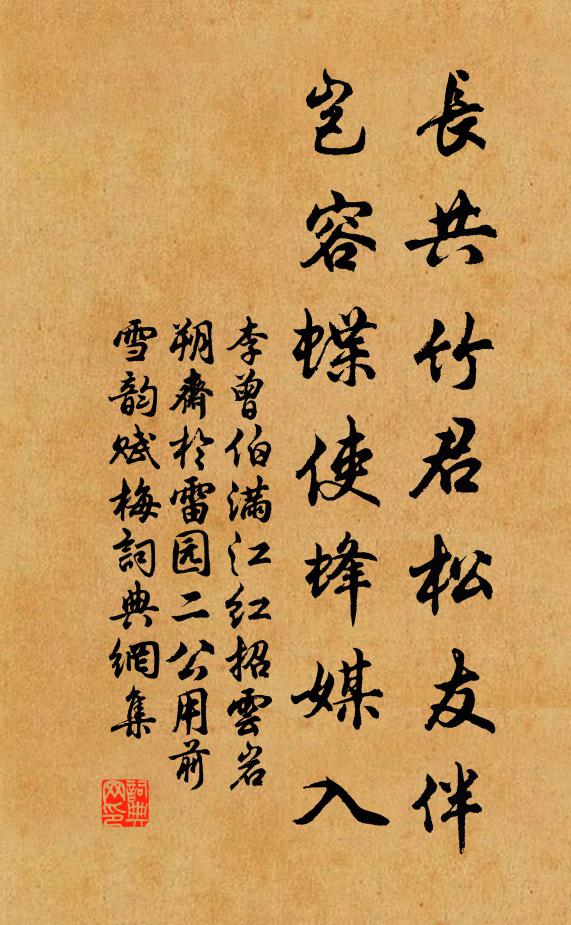 長共竹君松友伴
豈容蝶使蜂媒入
李曾伯滿江紅招雲岩
朔齋於雷园二公用前
雪韵賦梅詞典網集
詞典網印